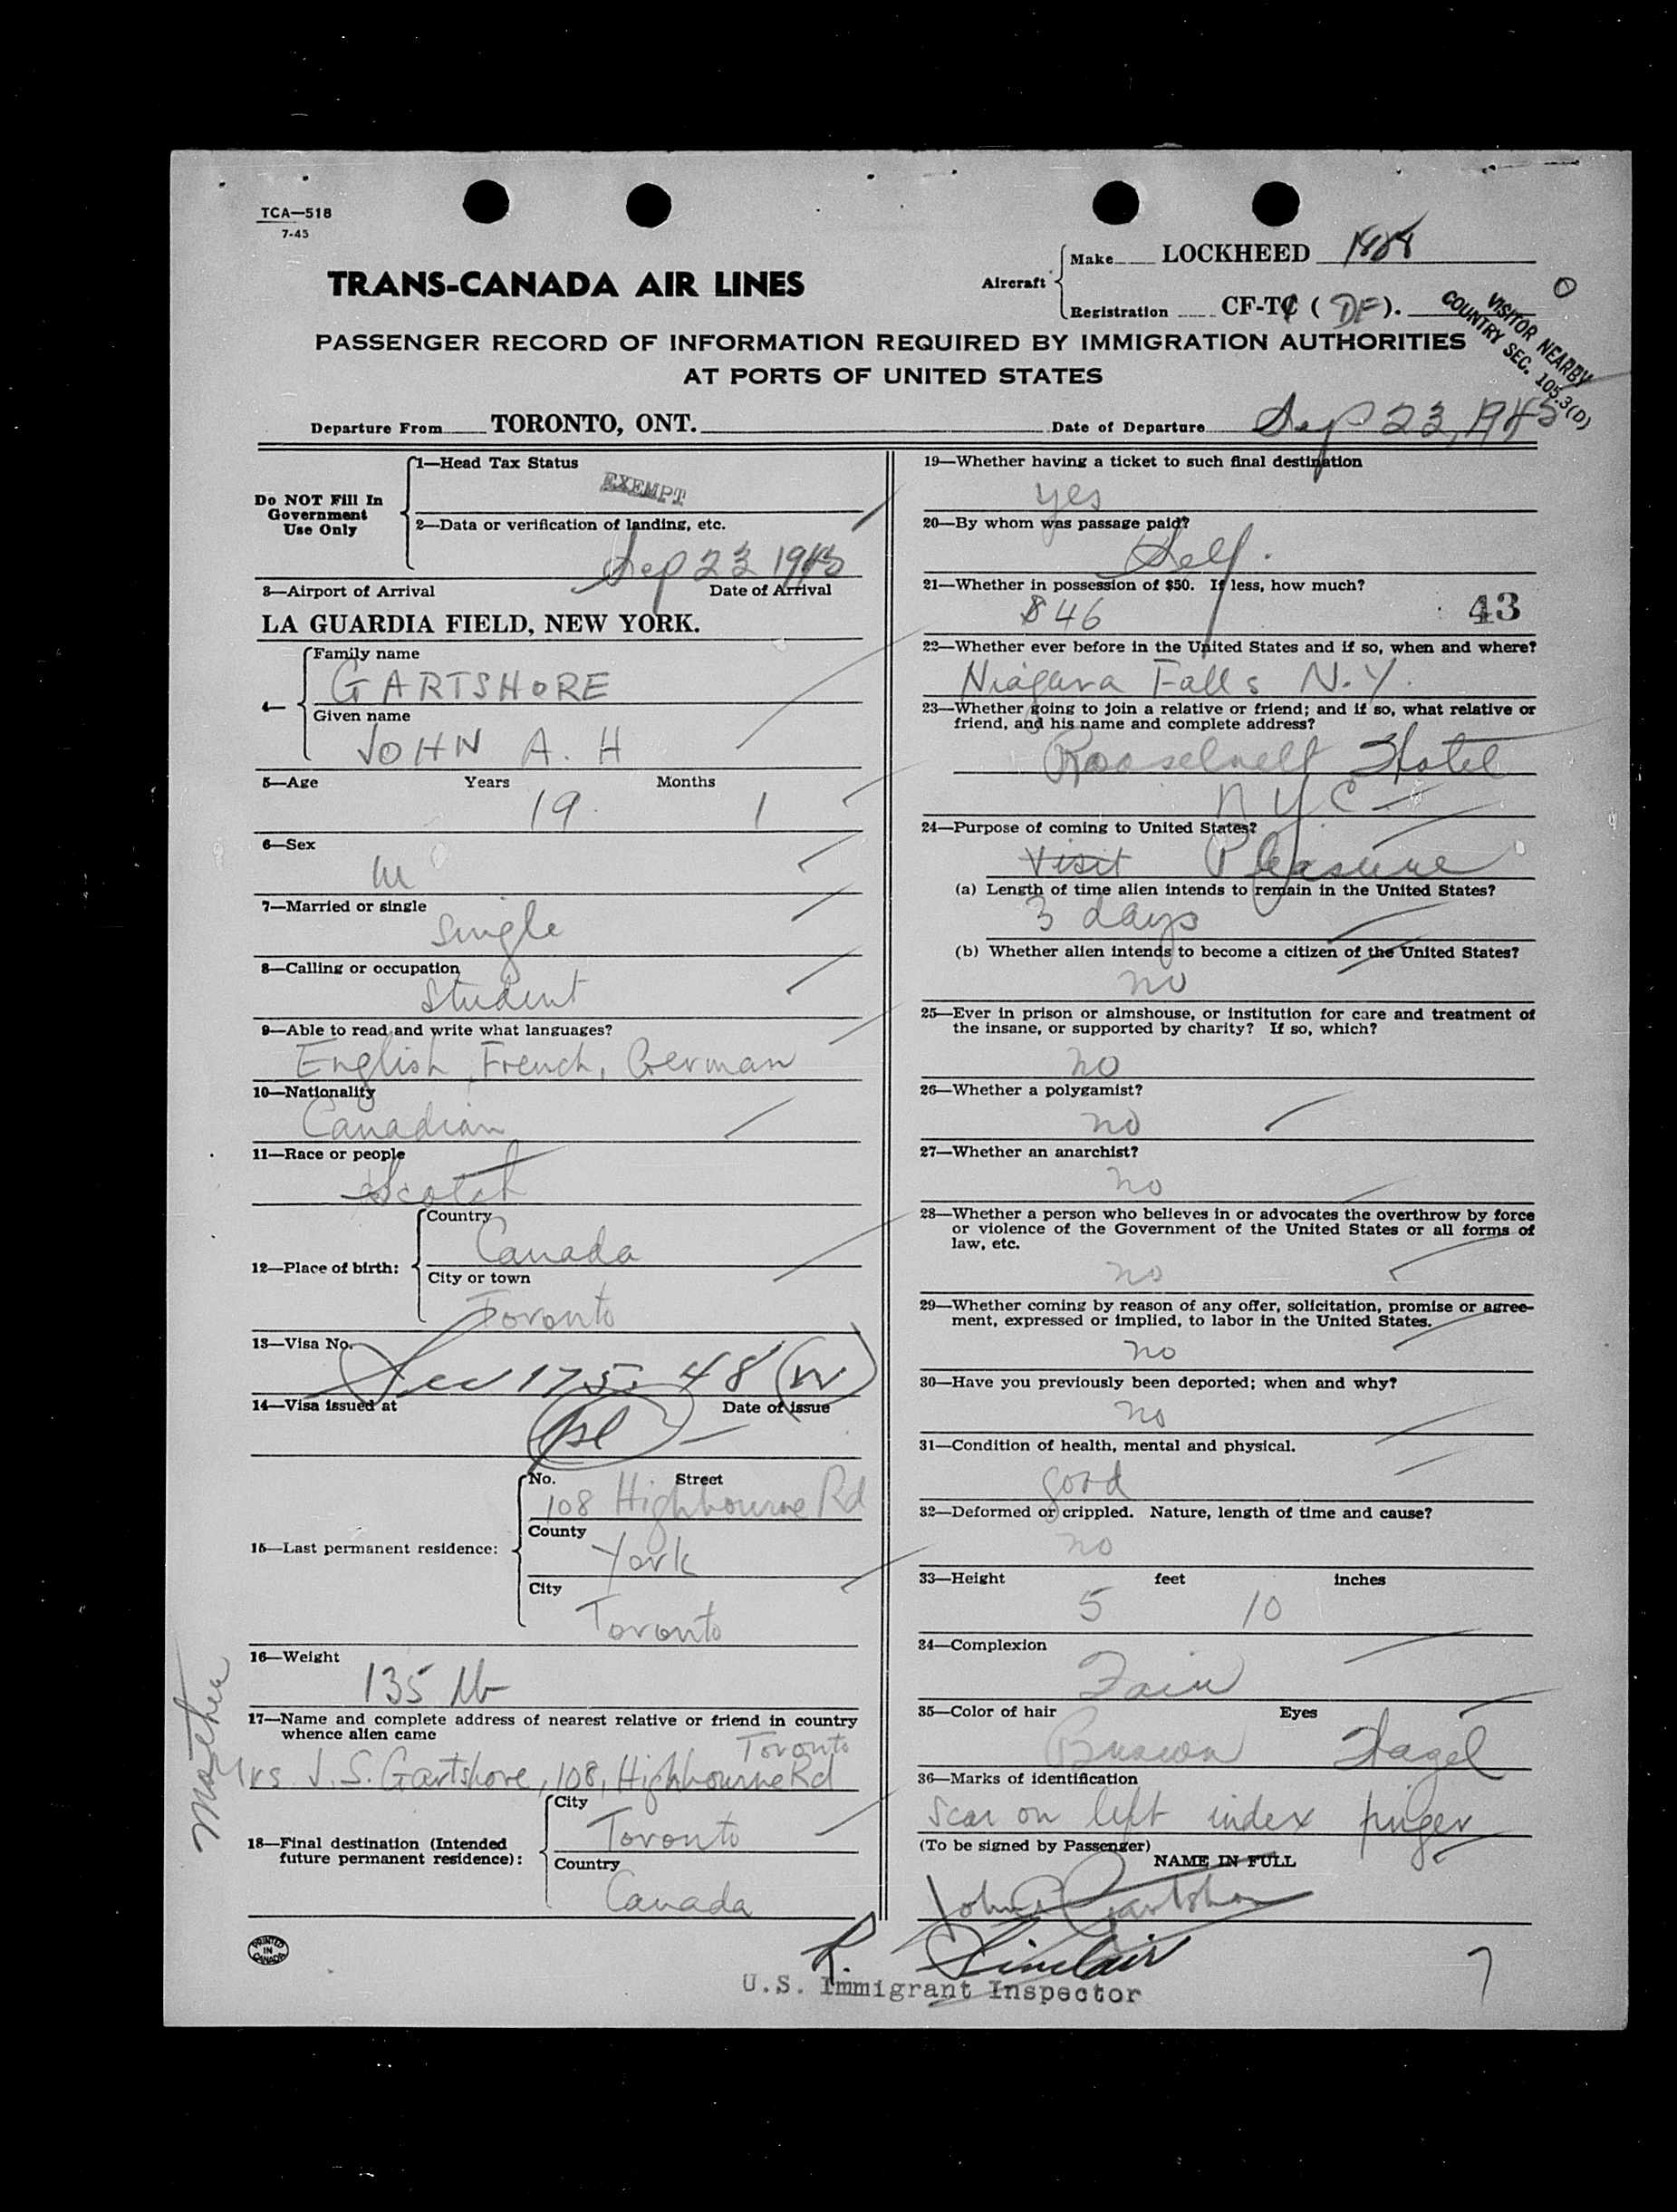 TCA—518
7-45
TRANS-CANADA AIR LINES
Aircraft
Make LOCKHEED
Registration CF-TC ( DF ).
VISITOR NEARBY
COUNTRY SEC. 105.3(D)
PASSENGER RECORD OF INFORMATION REQUIRED BY IMMIGRATION AUTHORITIES
AT PORTS OF UNITED STATES
Departure From TORONTO, ONT. Date of Departure Sep 23, 1945
Do NOT Fill In
Government
Use Only
1—Head Tax Status
EXEMPT
2—Data or verification of landing, etc.
Sep 23 1945
3—Airport of Arrival Date of Arrival
LA GUARDIA FIELD, NEW YORK.
4—
Family name
GARTSHORE
Given name
JOHN A. H
5—Age Years Months
19 1
6—Sex
M
7—Married or single
single
8—Calling or occupation
Student
9—Able to read and write what languages?
English, French, German
10—Nationality
Canadian
11—Race or people
Scotch
12—Place of birth:
Country
Canada
City or town
Toronto
13—Visa No.
Sec 175. 48 (W)
14—Visa issued at Date of issue
15—Last permanent residence:
No. Street
108 Highbourne Rd
County
York
City
Toronto
16—Weight
135 lb
17—Name and complete address of nearest relative or friend in country
whence alien came
Toronto
Mother
Mrs J. S. Gartshore, 108, Highbourne Rd
18—Final destination (Intended
future permanent residence):
City
Toronto
Country
Canada
PRINTED
IN
CANADA
19—Whether having a ticket to such final destination
yes
20—By whom was passage paid?
Self.
21—Whether in possession of $50. If less, how much?
$46 43
22—Whether ever before in the United States and if so, when and where?
Niagara Falls N.Y.
23—Whether going to join a relative or friend; and if so, what relative or
friend, and his name and complete address?
Rooselvelt Hotel
NYC
24—Purpose of coming to United States?
Visit Pleasure
(a) Length of time alien intends to remain in the United States?
3 days
(b) Whether alien intends to become a citizen of the United States?
no
25—Ever in prison or almshouse, or institution for care and treatment of
the insane, or supported by charity? If so, which?
no
26—Whether a polygamist?
no
27—Whether an anarchist?
no
28—Whether a person who believes in or advocates the overthrow by force
or violence of the Government of the United States or all forms of
law, etc.
no
29—Whether coming by reason of any offer, solicitation, promise or agree-
ment, expressed or implied, to labor in the United States.
no
30—Have you previously been deported; when and why?
no
31—Condition of health, mental and physical.
good
32—Deformed or crippled. Nature, length of time and cause?
no
33—Height feet inches
5 10
34—Complexion
Fair
35—Color of hair Eyes
Brown Hazel
36—Marks of identification
scar on left index finger
(To be signed by Passenger)
NAME IN FULL
John Gartshore
R. Sinclair
U.S. Immigrant Inspector
7